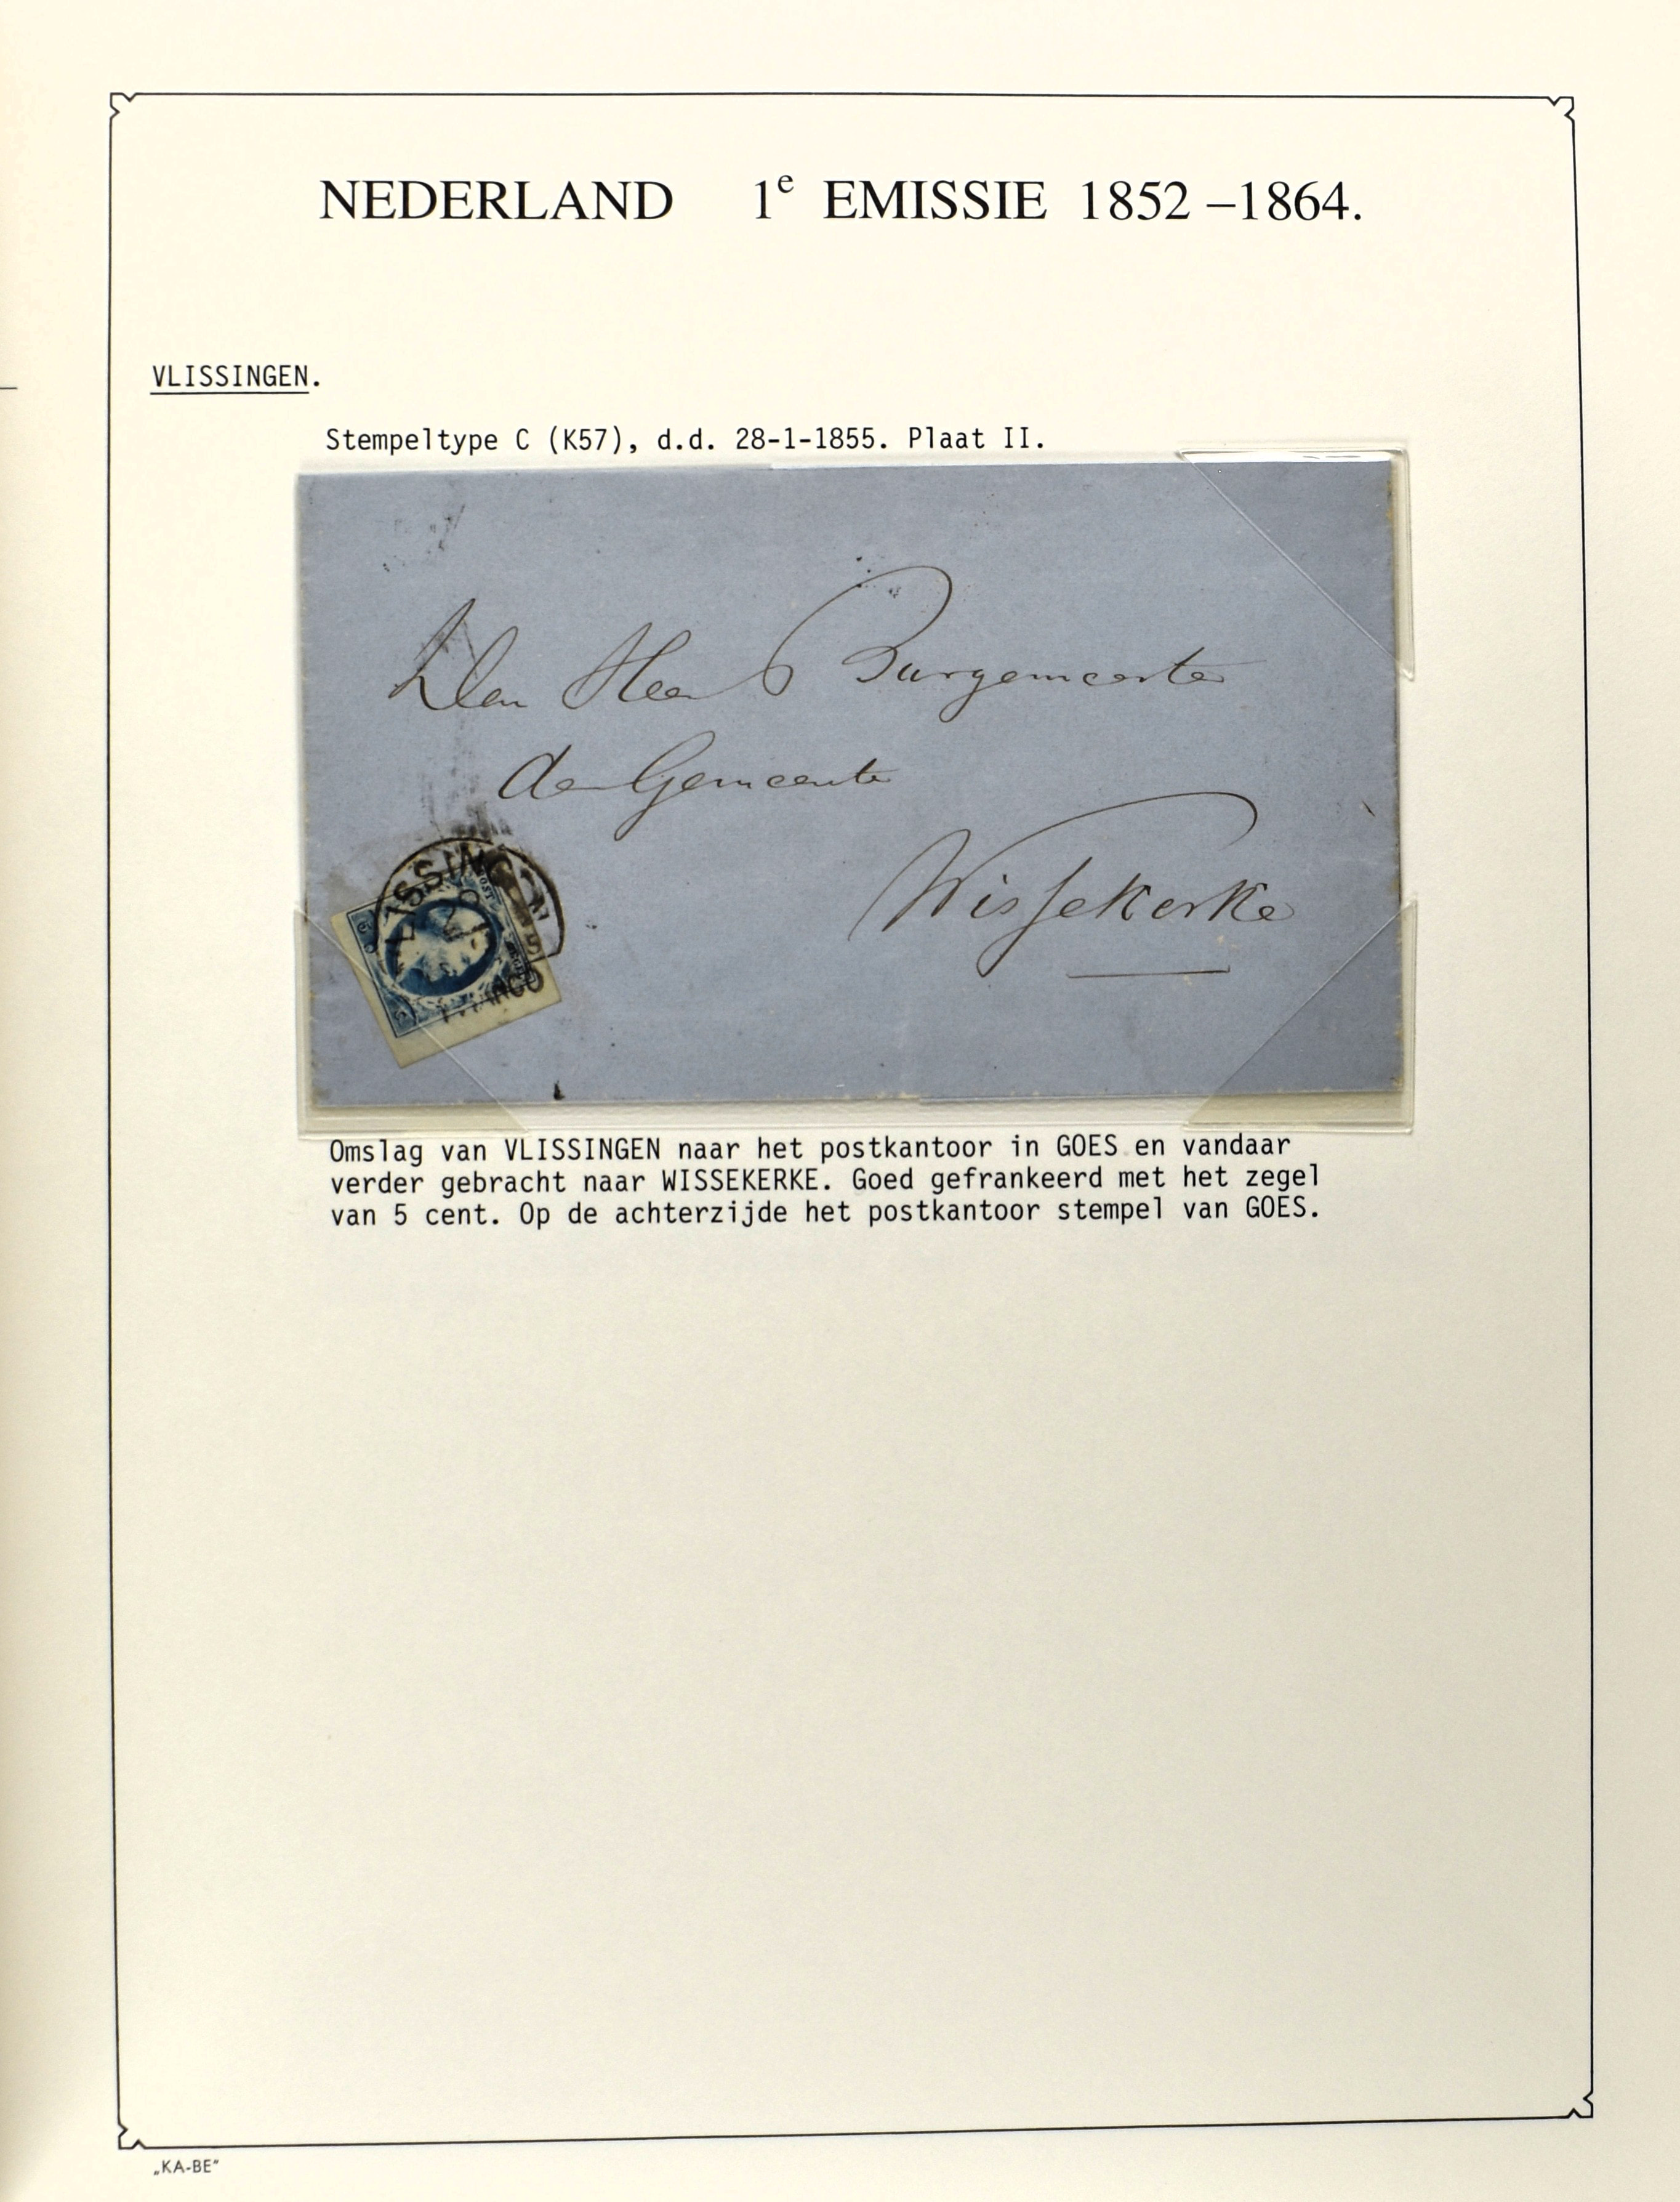 NEDERLAND 1e EMISSIE 1852 –1864.
VLISSINGEN.
Stempeltype C (K57), d.d. 28-1-1855. Plaat II.
Den Heer Burgemeester
der Gemeente
Wissekerke
VLISSINGEN
FRANCO
Omslag van VLISSINGEN naar het postkantoor in GOES en vandaar
verder gebracht naar WISSEKERKE. Goed gefrankeerd met het zegel
van 5 cent. Op de achterzijde het postkantoor stempel van GOES.
„KA-BE"